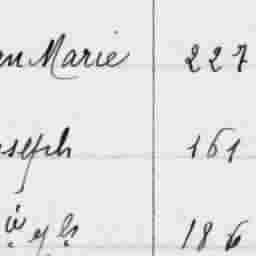 en Marie 227
oseph 161
186